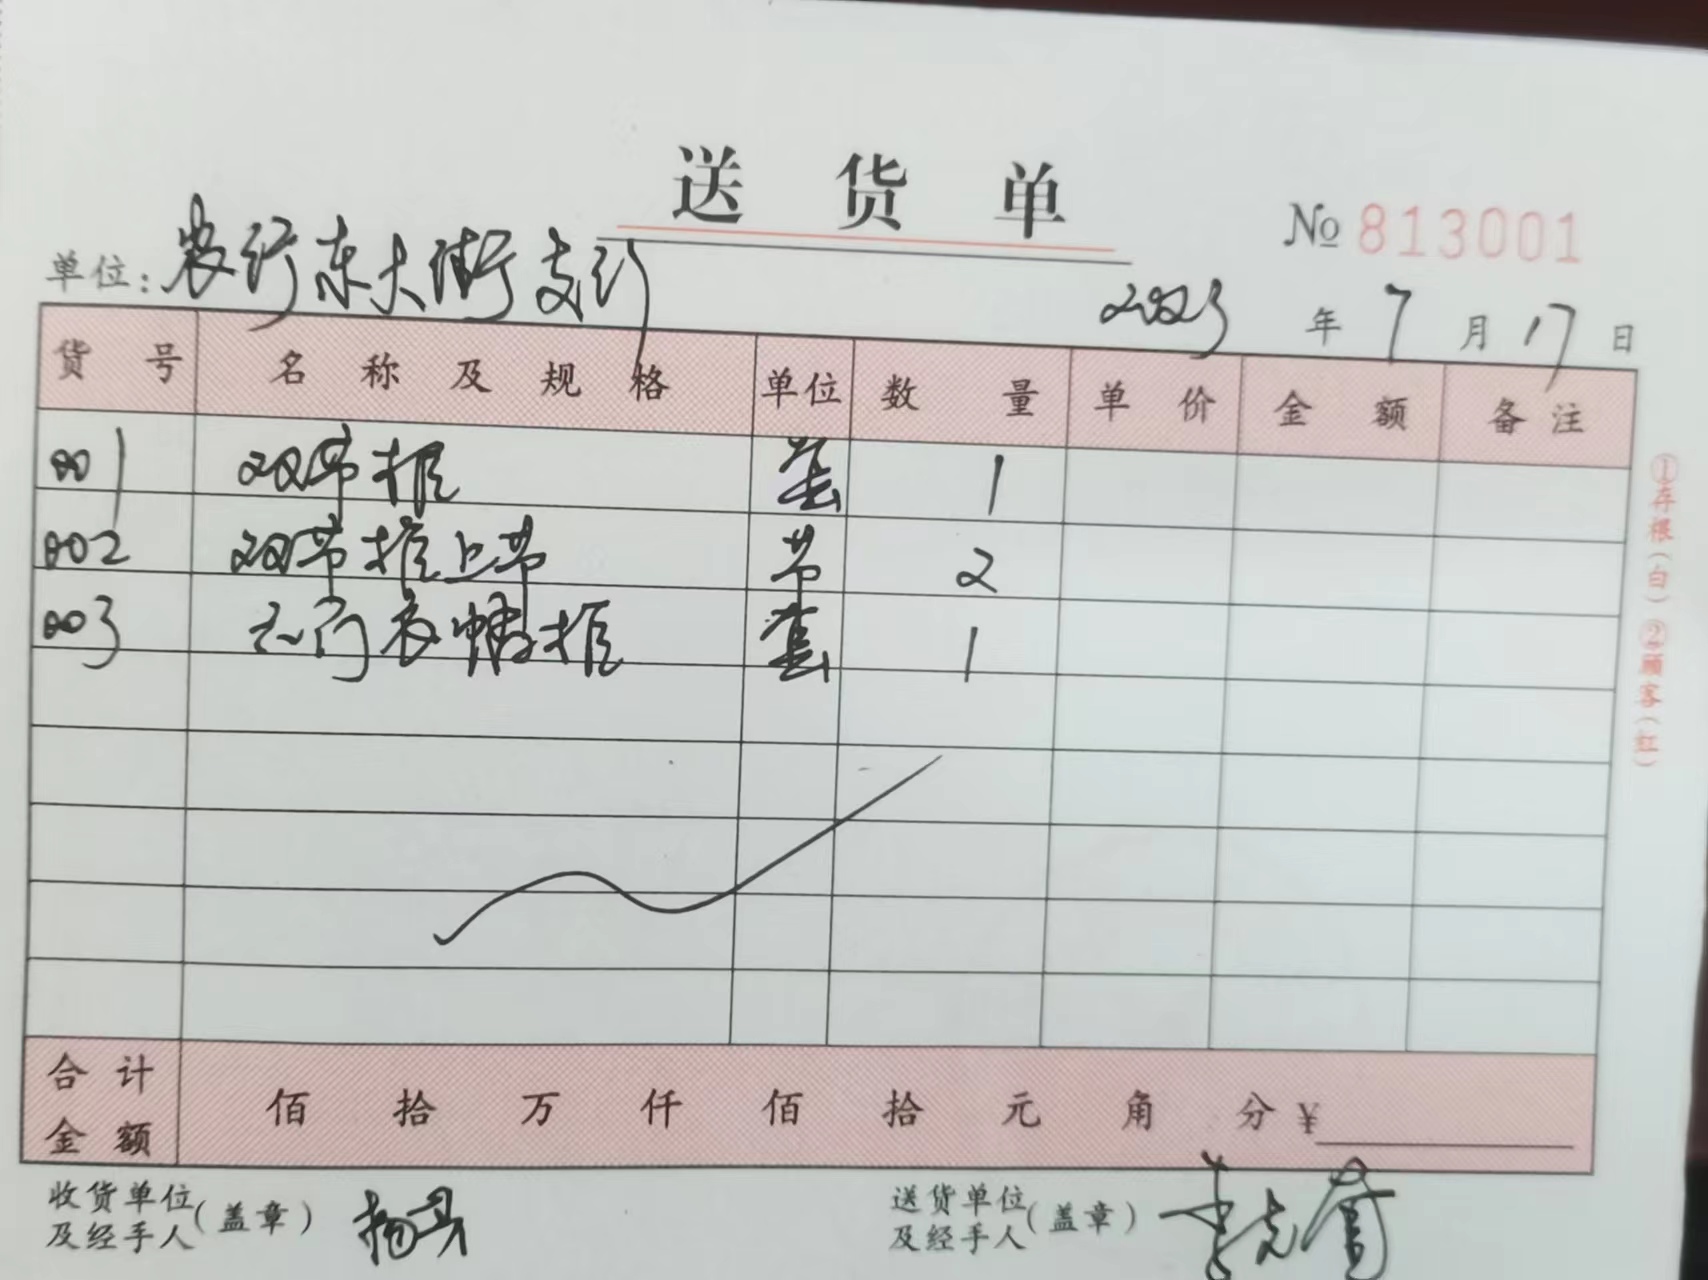 送 货 单
№ 813001
单位: 农行东大街支行
2023 年 7 月 17 日
货 号 名 称 及 规 格 单位 数 量 单 价 金 额 备 注
001 双节柜 套 1
002 双节柜上节 节 2
003 三门衣帽柜 套 1
合 计 金 额 佰 拾 万 仟 佰 拾 元 角 分 ¥
收货单位及经手人(盖章)
送货单位及经手人(盖章)
①存根(白) ②顾客(红)